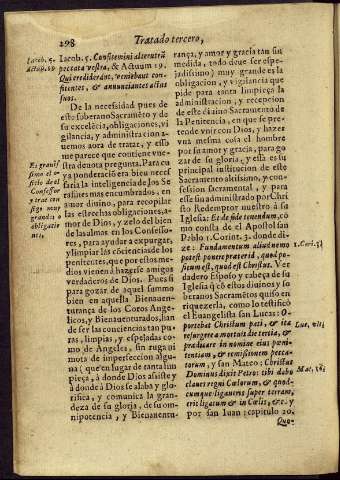 298
Tratado tercero,
Iacob. 5. Confitemini alterutrũ
peccata vestra, & Actuum 19.
Qui crediderant, veniebant con-
fitentes, & annunciantes actus
suos.
De la necessidad pues de
este soberano Sacramẽto y de
su excelẽcia, obligaciones, vi
gilancia, y administracion a-
uemos aora de tratar, y essa
me parece que contiene vue-
stra denota pregunta. Para cu
ya ponderacion era bien neces
saria la inteligencia de los Se
rafines mas encumbrados, en
amor diuino, para recopilar
las estrechas obligaciones, a-
mor de Dios, y zelo del bien
de las almas en los Confesso-
res, para ayudar a expurgar,
y limpiar las cõciencias de los
penitentes, que por estos me-
dios vienen à hazerse amigos
verdaderos de Dios. Pues si
para gozar de aquel summo
bien en aquella Bienauen-
turança de los Coros Ange-
licos, y Bienauenturados, han
de ser las conciencias tan pu-
ras, limpias, y espejadas co-
mo de Angeles, sin ruga ni
mota de imperfeccion algu-
na (que en lugar de tanta lim
pieça, à donde Dios assiste y
à donde à Dios se alaba y glo-
rifica, y comunica la gran-
deza de su gloria, de su om-
nipotencia, y Bienauentu-
Iacob. 5.
Actuũ. 19
Es grauis
simo el o-
ficio de el
Confessor
y trae con
sigo muy
grandes
obligatio
nes,
rança, y amor y gracia tan sin
medida, todo deue ser espe-
jadissimo) muy grande es la
obligacion, y vigilancia que
pide para tanta limpieça la
administracion, y recepcion
de este diuino Sacramento de
la Penitencia, en que se pre-
tende vnir con Dios, y hazer
vna mesma cosa el hombre
por su amor y gracia, para go
zar de su gloria; y essa es su
principal institucion de este
Sacramento altissimo, y con-
fession sacramental, y para
esse fin administrado por Chri
sto Redemptor nuestro à su
Iglesia: Et de fide tenendum, co
mo consta de el Apostol san
Pablo 1. Corint. 3. donde di-
ze: Fundamentum aliud nemo
potest ponere præter id, quod po-
situm est, quod est Christus. Ver
dadero Esposo y cabeça de su
Iglesia q̃ cõ estos diuinos y so
beranos Sacramẽtos quiso en
riquezerla, como lo testificò
el Euangelista san Lucas: O-
portebat Christum pati, & ita
resurgere a mortuis die tertia, &
prædicare in nomine eius pœni-
tentiam, & remissionem pecca-
torum, y san Mateo: Christus
Dominus dixit Petro: tibi dabo
claues regni Cœlorum, & quod-
cumque ligaueris super terram,
erit ligatum & in Cœlis, &c. y
por san Iuan: capitulo 20.
1. Cor. 3.
Quo-